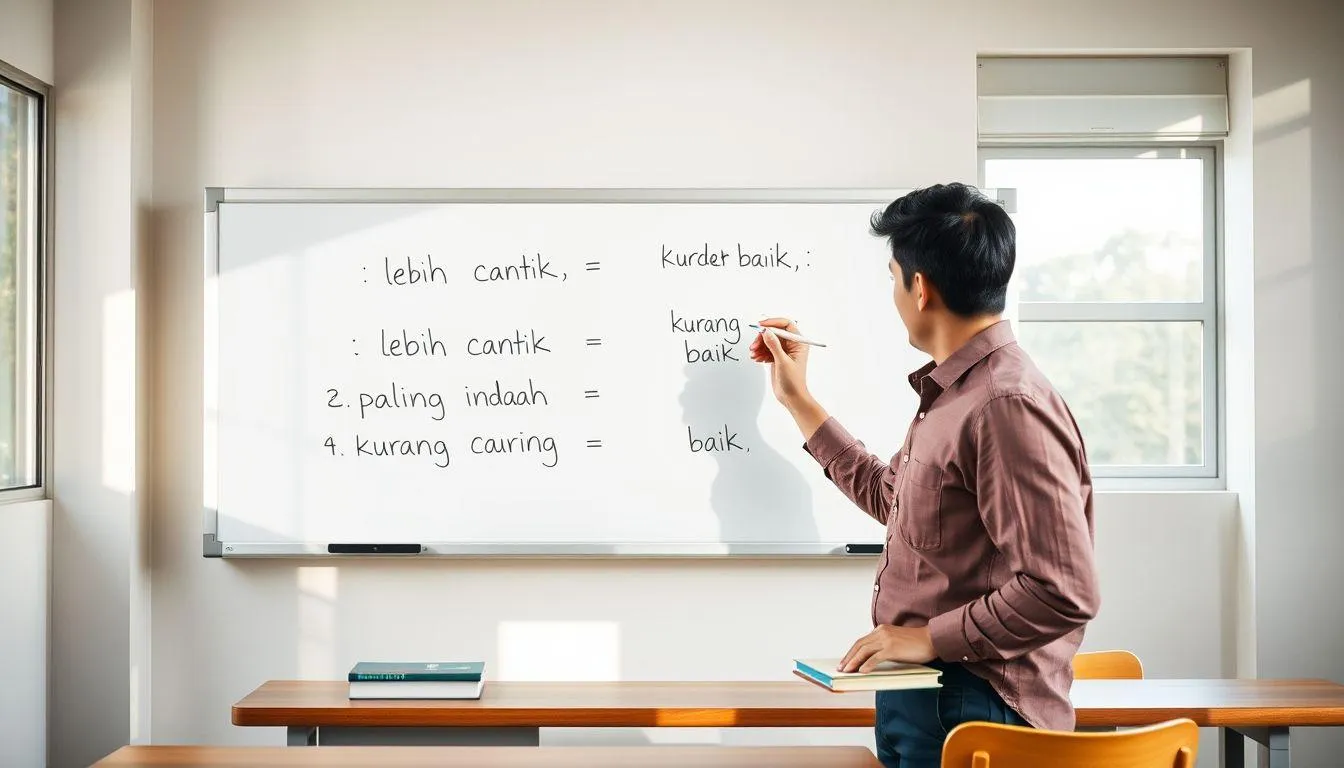 : lebih cantik, = kurdet baiik, :
: lebih cantik = kurang
baik.
2. paling indaah =
4. kurang cauring = baik,